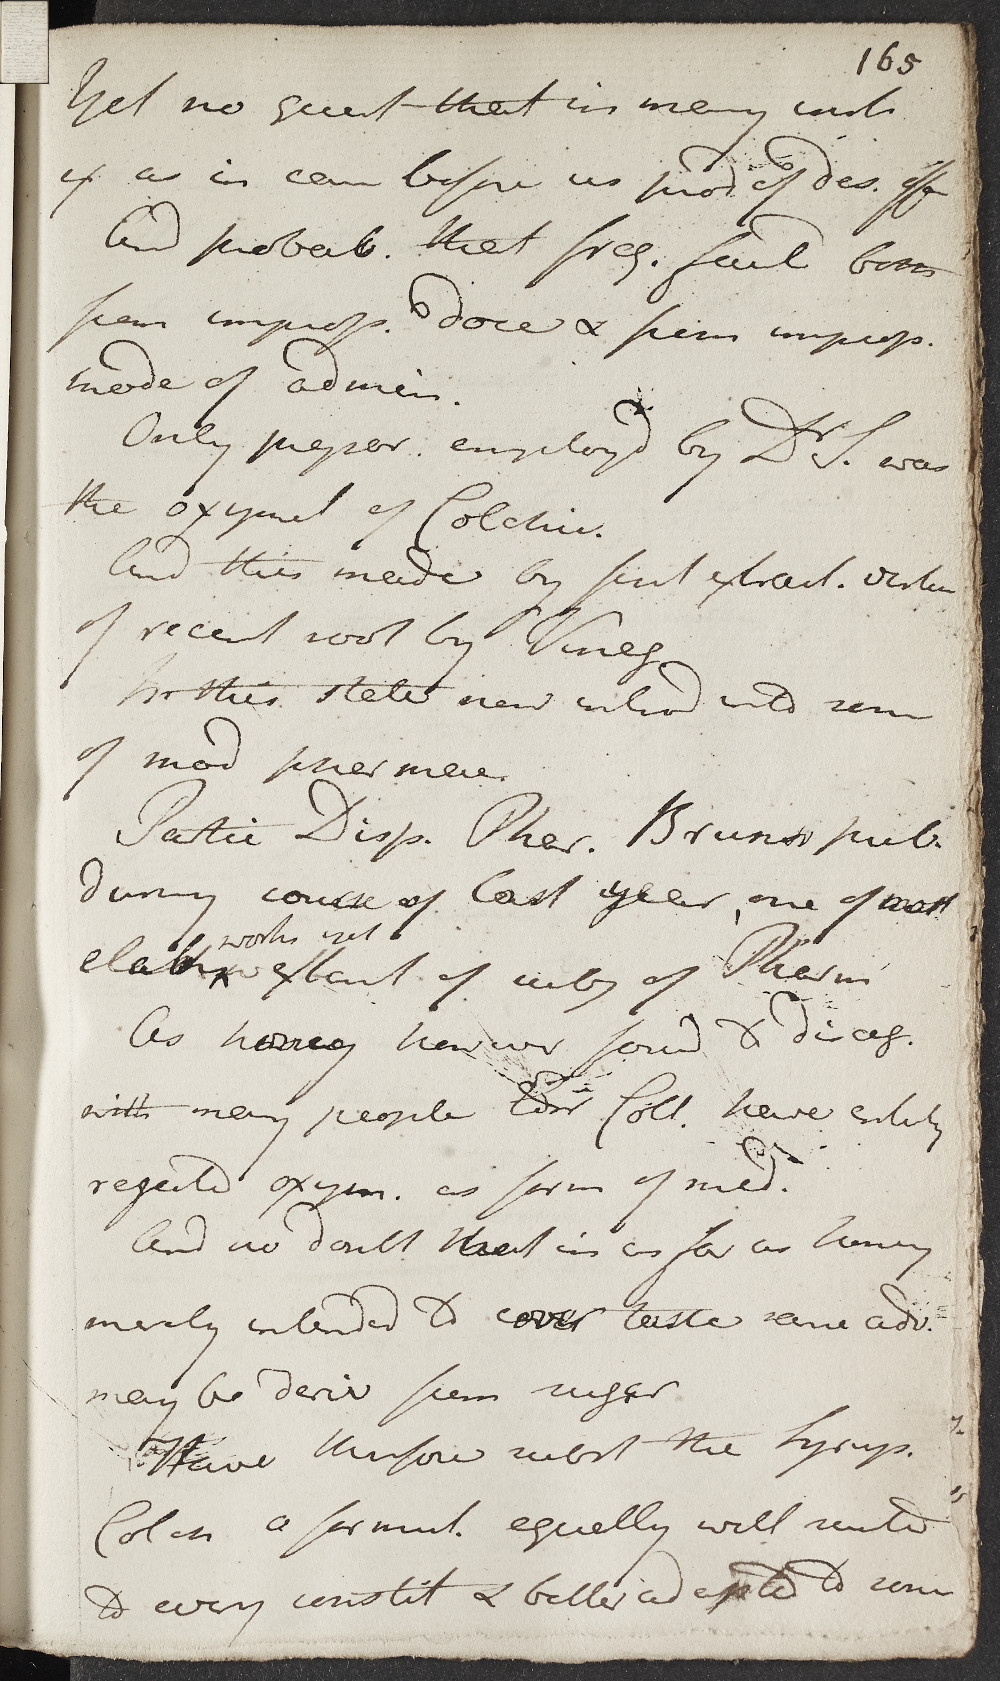 165
Yet no quest that in many inst.
& as in case before us prod of des. eff
And probab. that freq. fault both
from improp. dose & from improp.
mode of admin.
Only prepar. employd by Dr S. was
the oxymel of Colchic.
And this made by first extract. virtue
of recent root by Vineg
In this state now introd into some
of mod pharmac.
Partic Disp. Phar. Bruns pub.
during course of last year, one of most
elab works yet extant of subj of Pharm
As honey however found to disag.
with many people Edinr Coll. have entirely
rejected oxym. as form of med.
And no doubt that in as far as honey
merely intended to cover taste some adv.
may be deriv from sugar
Have therefore subst the Syrup.
Colch a formul. equally well suited
to every constit & better adapted to some